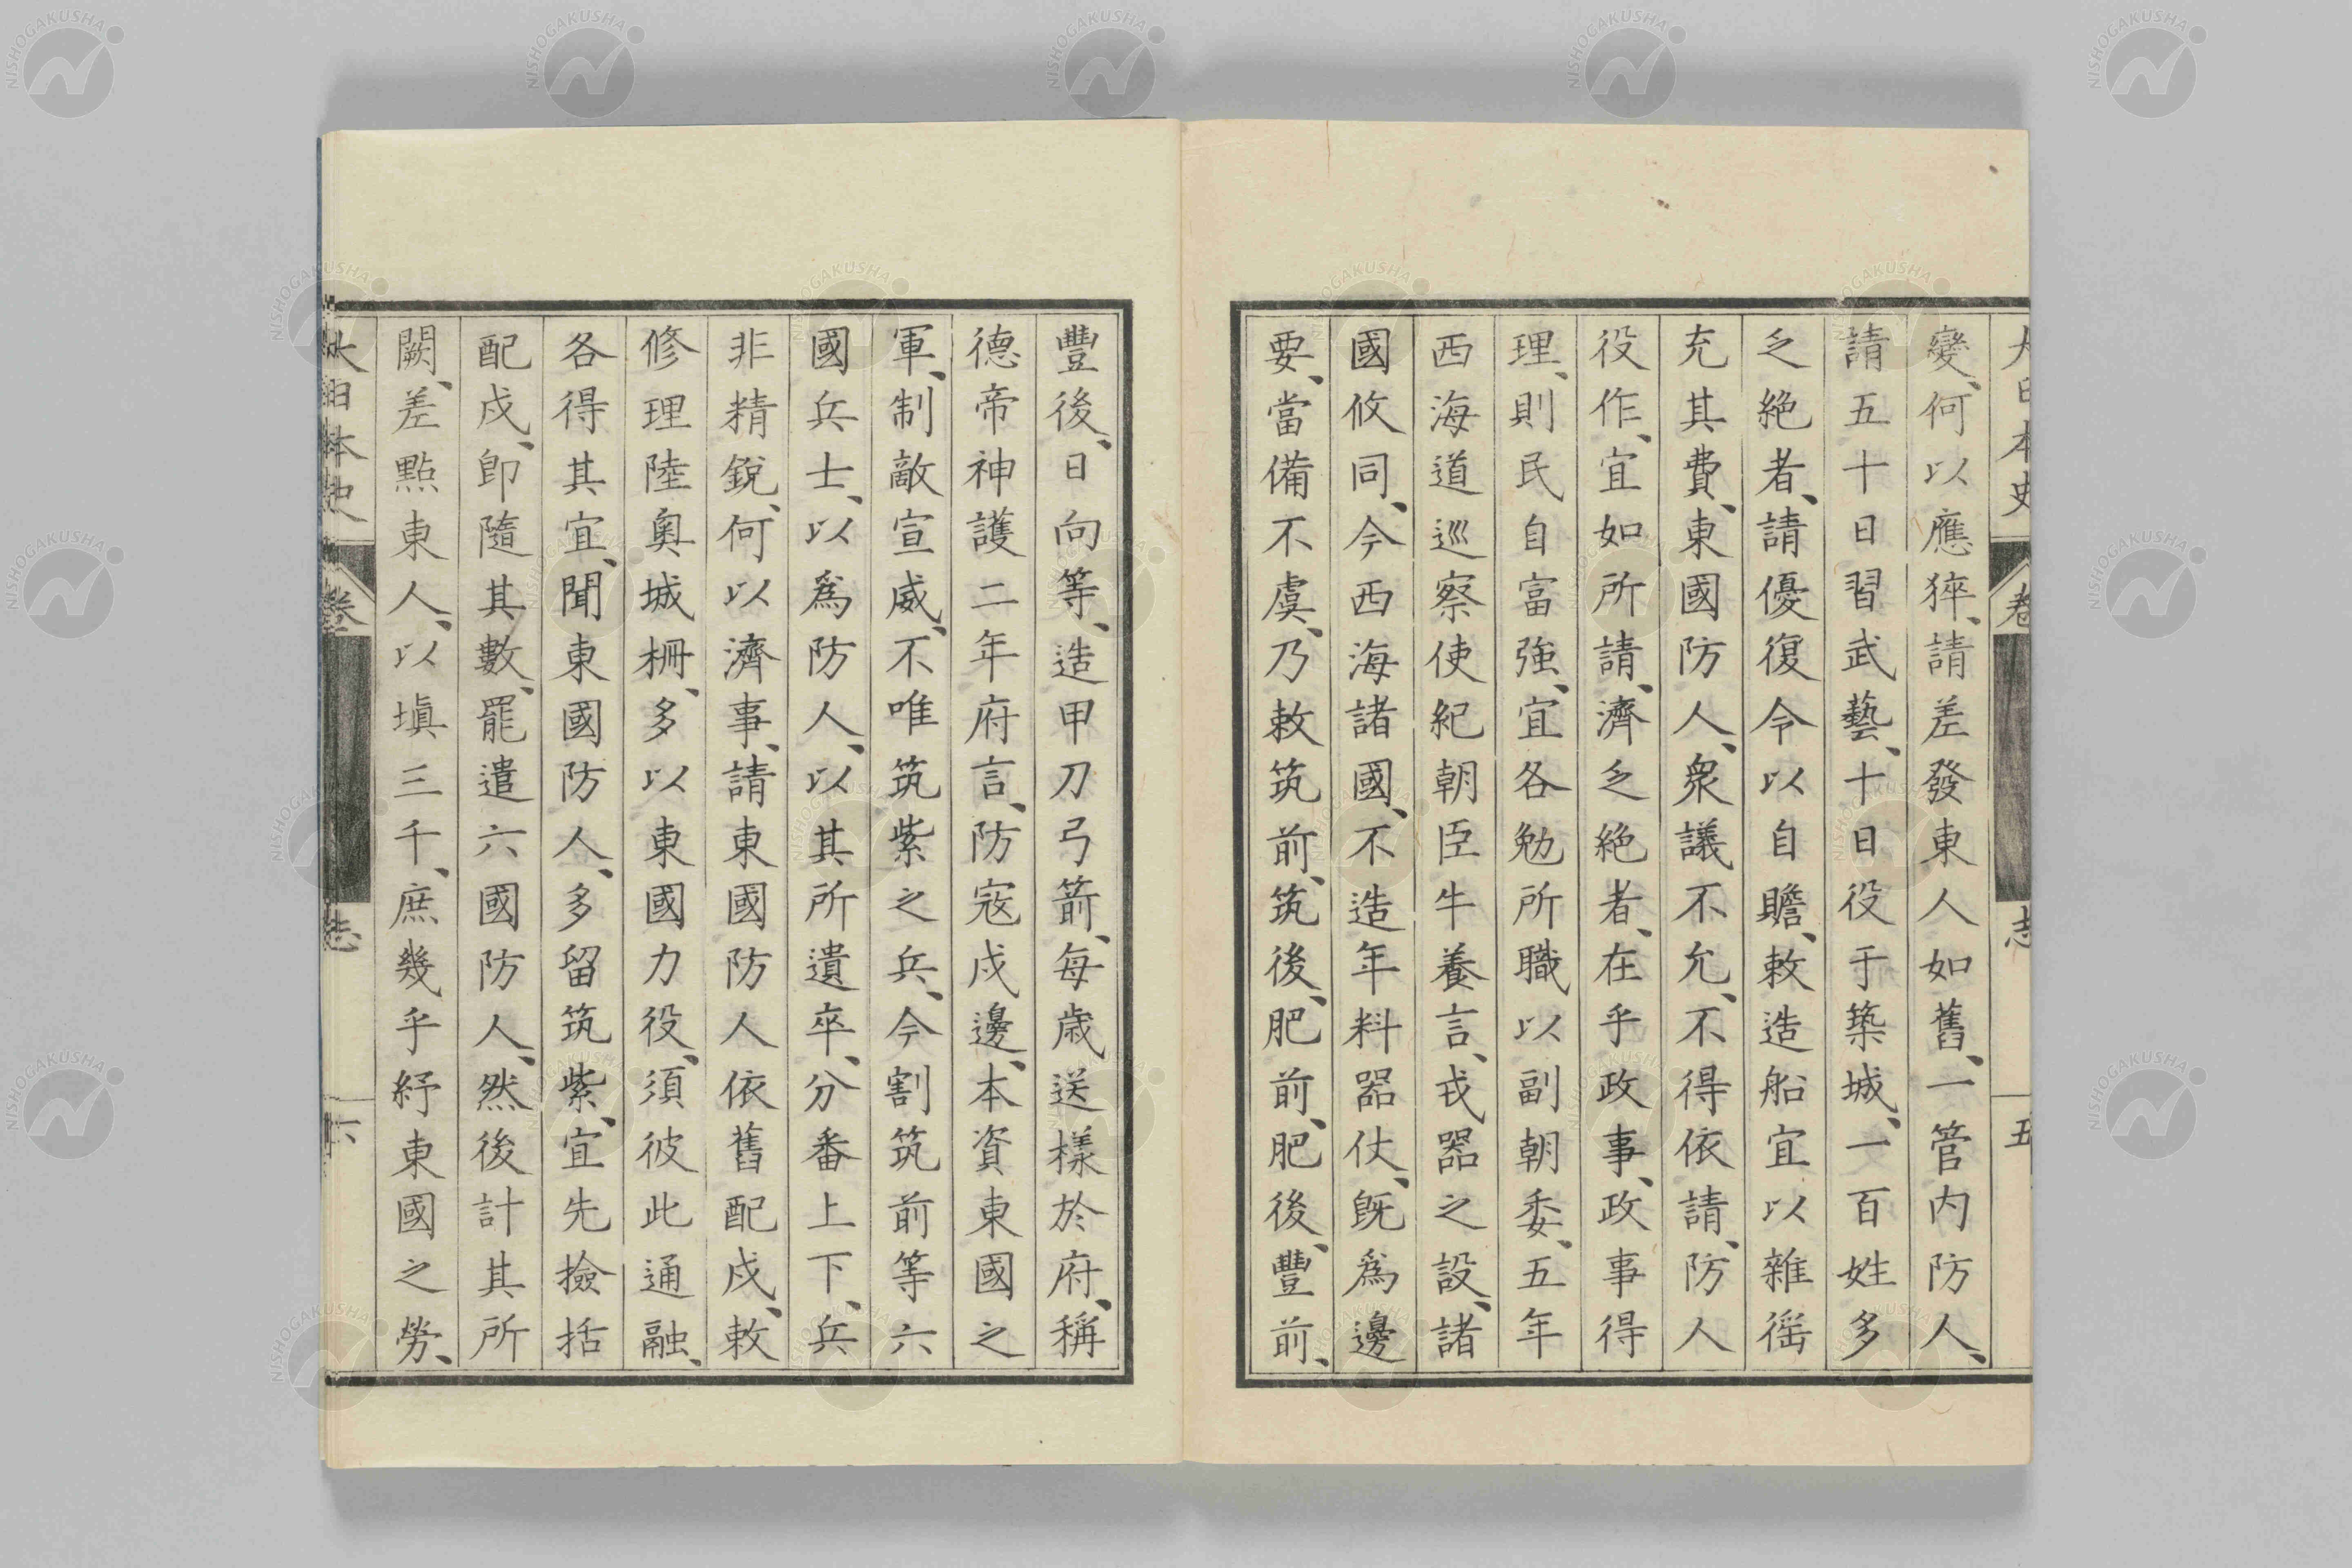 大日本史 卷 志 五
變、何以應猝、請差發東人如舊、一管内防人、
請五十日習武藝、十日役于築城、一百姓多
乏絶者、請優復令以自贍、敕造船宜以雜徭
充其費、東國防人、衆議不允、不得依請、防人
役作、宜如所請、濟乏絶者、在乎政事、政事得
理、則民自富強、宜各勉所職以副朝委、五年
西海道巡察使紀朝臣牛養言、戎器之設、諸
國攸同、今西海諸國、不造年料器仗、旣爲邊
要、當備不虞、乃敕筑前、筑後、肥前、肥後、豐前、
豐後、日向等、造甲刀弓箭、毎歳送樣於府、稱
德帝神護二年府言、防寇戍邊、本資東國之
軍、制敵宣威、不唯筑紫之兵、今割筑前等六
國兵士、以爲防人、以其所遺卒、分番上下、兵
非精銳、何以濟事、請東國防人依舊配戍、敕
修理陸奧城柵、多以東國力役、須彼此通融、
各得其宜、聞東國防人、多留筑紫、宜先撿括
配戍、卽隨其數、罷遣六國防人、然後計其所
闕、差點東人、以塡三千、庶幾乎紓東國之勞、
大日本史 卷 志 六
NISHOGAKUSHA